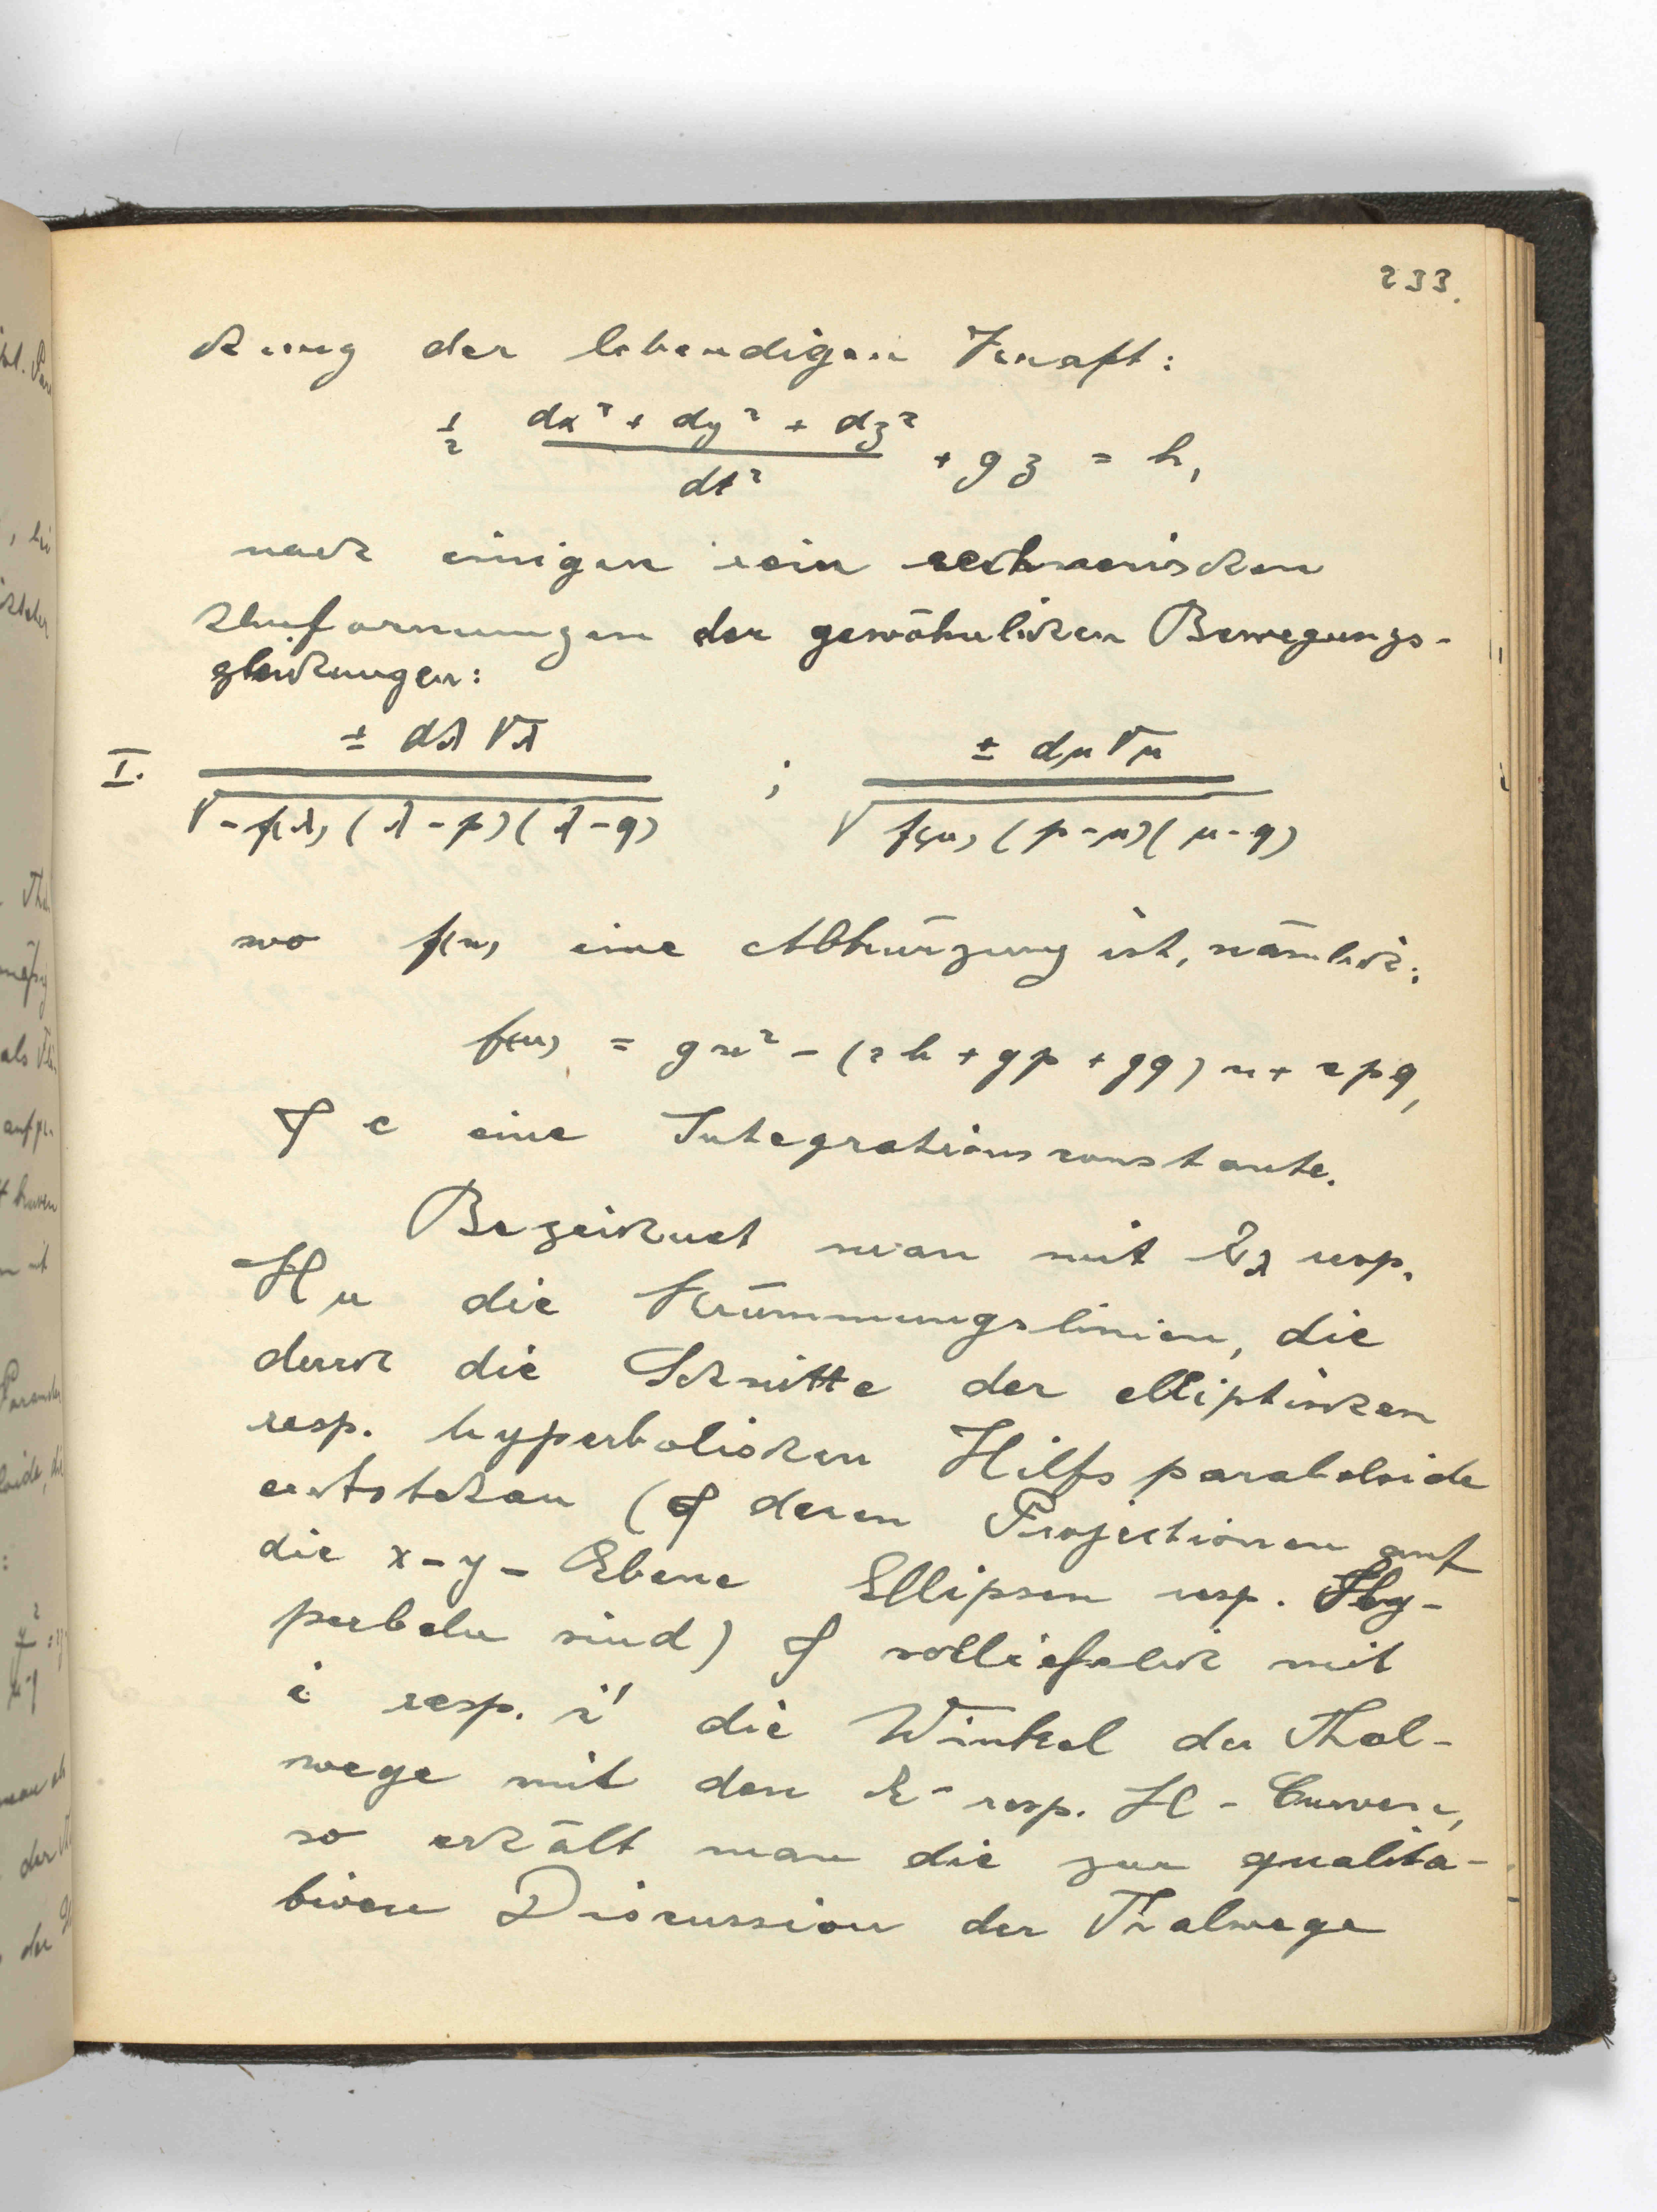 233.
chung der lebendigen Kraft:
½ (dx² + dy² + dz²)/dt² + gz = h,
nach einigen rein rechnerischen
Umformungen der gewöhnlichen Bewegungs-
gleichungen:
I. (± dλ √λ)/√(-f(λ)(λ-p)(λ-q)) ; (± dμ √μ)/√(f(μ)(p-μ)(μ-q))
wo f(u) eine Abkürzung ist, nämlich:
f(u) = gu² - (2h + gp + gq)u + cpq,
& c eine Integrationsconstante.
Bezeichnet man mit Eλ resp.
Hμ die Krümmungslinien, die
durch die Schnitte der elliptischen
resp. hyperbolischen Hilfsparaboloide
entstehen (& deren Projectionen auf
die x-y-Ebene Ellipsen resp. Hy-
perbeln sind) & schließlich mit
i resp. i' die Winkel der Thal-
wege mit den E- resp. H-Curven,
so erhält man die zur qualita-
tiven Discussion der Thalwege